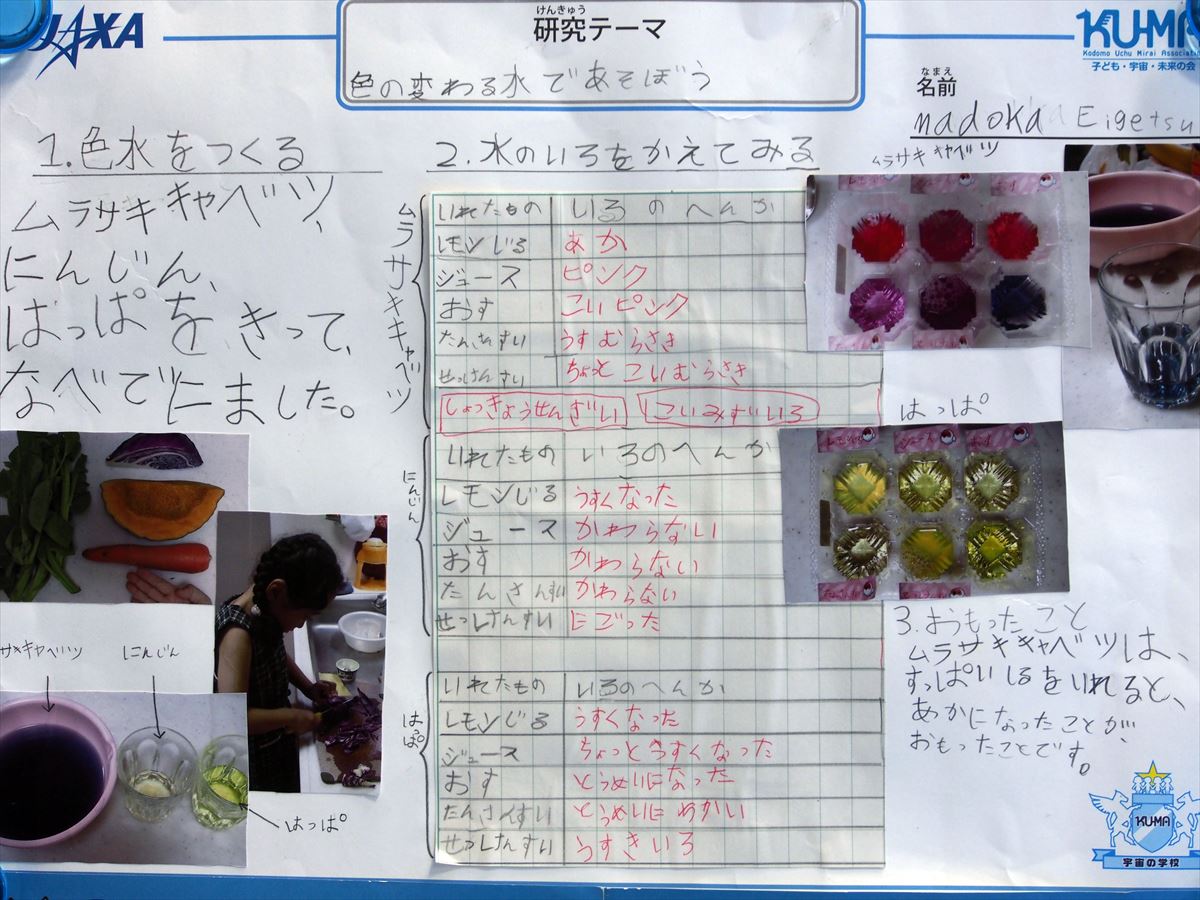 JAXA
けんきゅう
研究テーマ
色の変わる水であそぼう
KUMA
Kodomo Uchu Mirai Association
子ども・宇宙・未来の会
なまえ
名前
madoka Eigetsu
1.色水をつくる
ムラサキキャベツ、
にんじん、
はっぱをきって、
なべでにました。
サキキャベツ
にんじん
はっぱ
2.水のいろをかえてみる
ムラサキキャベツ
いれたもの いろのへんか
レモンじる あか
ジュース ピンク
おす こいピンク
たんさんすい うすむらさき
せっけんすい ちょっとこいむらさき
しょっきようせんざい こいみずいろ
にんじん
いれたもの いろのへんか
レモンじる うすくなった
ジュース かわらない
おす かわらない
たんさんすい かわらない
せっけんすい にごった
はっぱ
いれたもの いろのへんか
レモンじる うすくなった
ジュース ちょっとうすくなった
おす とうめいになった
たんさんすい とうめいにちかい
せっけんすい うすきいろ
ムラサキキャベツ
はっぱ
レモンじる ジュース おす
3.おもったこと
ムラサキキャベツは、
すっぱいしるをいれると、
あかになったことが、
おもったことです。
KUMA
宇宙の学校